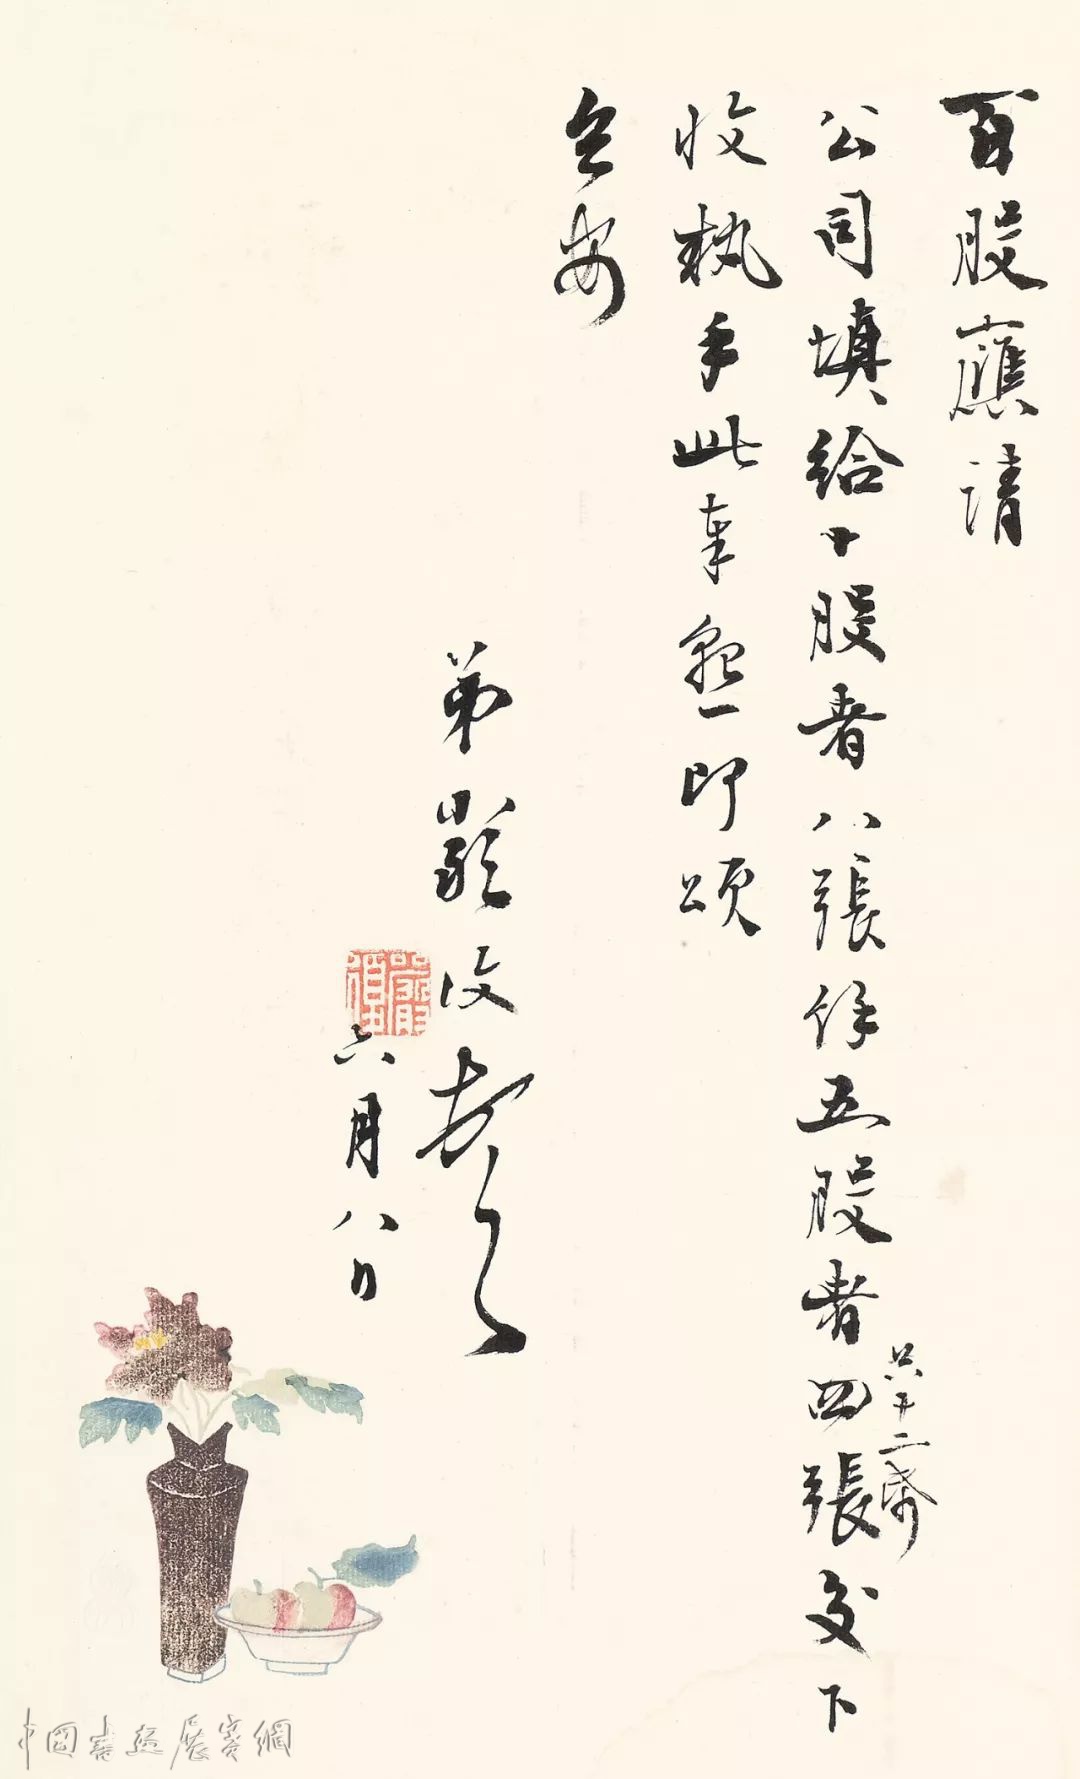 百股應請
公司填給十股者八張餘五股者四張交下
共十二帋
收執手此奉懇即頌
台安
弟嚴復頓首
六月八日
中國書畫展賽網